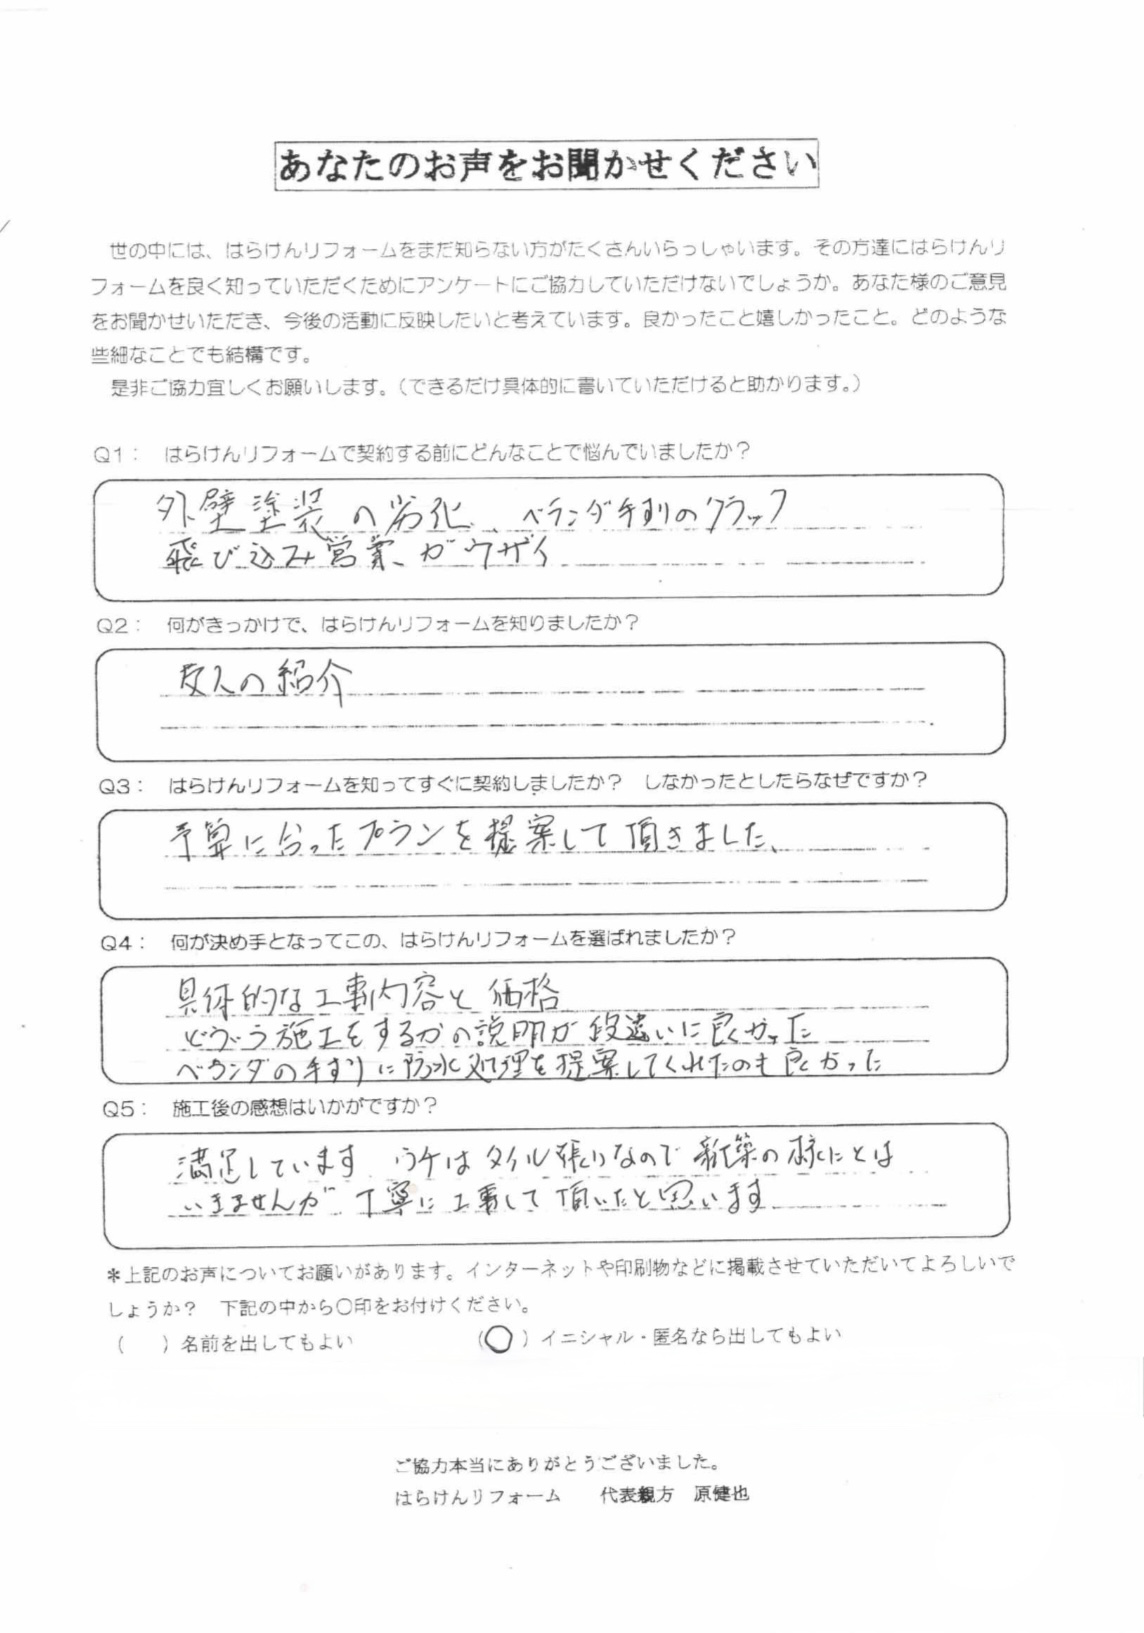 あなたのお声をお聞かせください
世の中には、はらけんリフォームをまだ知らない方がたくさんいらっしゃいます。その方達にはらけんリ
フォームを良く知っていただくためにアンケートにご協力していただけないでしょうか。あなた様のご意見
をお聞かせいただき、今後の活動に反映したいと考えています。良かったこと嬉しかったこと。どのような
些細なことでも結構です。
是非ご協力宜しくお願いします。（できるだけ具体的に書いていただけると助かります。）
Q1： はらけんリフォームで契約する前にどんなことで悩んでいましたか？
外壁塗装の劣化、ベランダ手すりのクラック
飛び込み営業、がウザイ
Q2： 何がきっかけで、はらけんリフォームを知りましたか？
友人の紹介
Q3： はらけんリフォームを知ってすぐに契約しましたか？ しなかったとしたらなぜですか？
予算に合ったプランを提案して頂きました、
Q4： 何が決め手となってこの、はらけんリフォームを選ばれましたか？
具体的な工事内容と価格
どういう施工をするかの説明が段違いに良かった
ベランダの手すりに防水処理を提案してくれたのも良かった
Q5： 施工後の感想はいかがですか？
満足しています ウチはタイル張りなので新築の様にとは
いきませんが 丁寧に工事して頂いたと思います
＊上記のお声についてお願いがあります。インターネットや印刷物などに掲載させていただいてよろしいで
しょうか？ 下記の中から〇印をお付けください。
（ ）名前を出してもよい （〇）イニシャル・匿名なら出してもよい
ご協力本当にありがとうございました。
はらけんリフォーム 代表親方 原健也